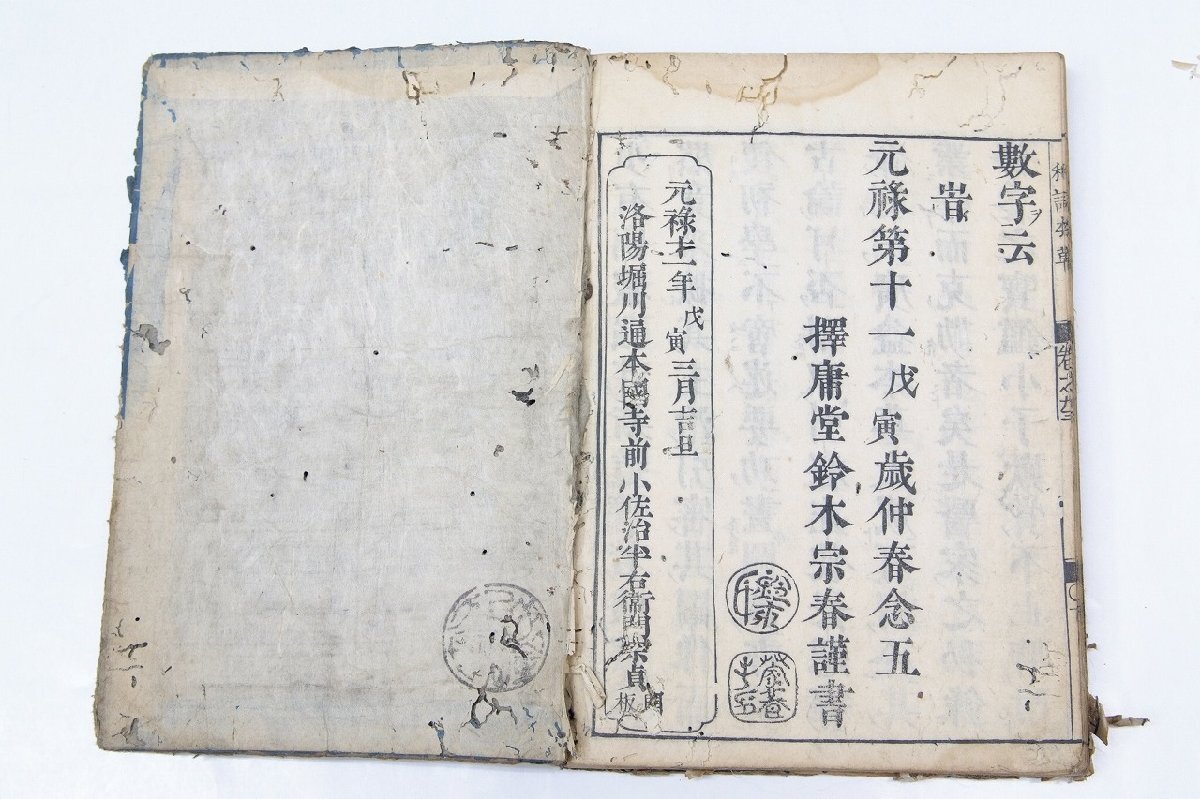 數字ヲ云
旹
元祿第十一戊寅歲仲春念五
擇庸堂鈴木宗春謹書
元祿十一年戊寅三月吉旦
洛陽堀川通本國寺前小佐治半右衛門宗貞開板